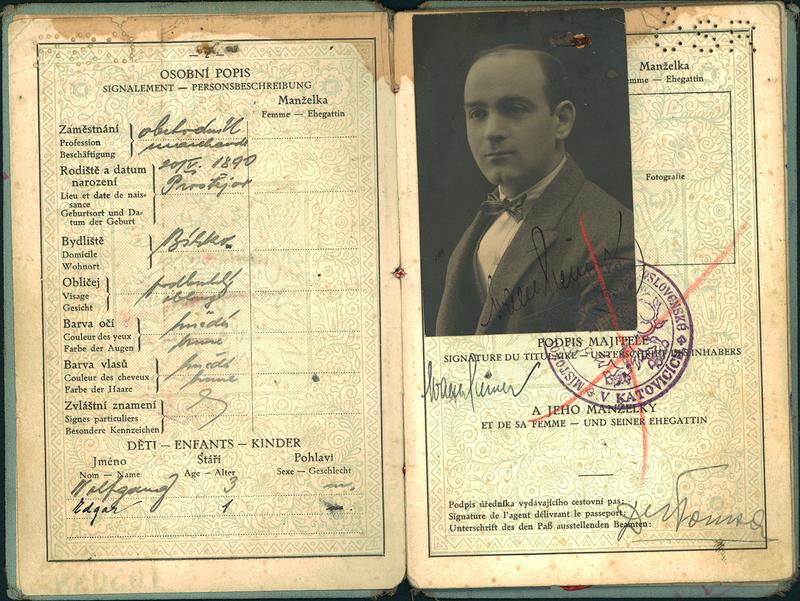 — 2 —
OSOBNÍ POPIS
SIGNALEMENT — PERSONSBESCHREIBUNG
Manželka
Femme — Ehegattin
Zaměstnání
Profession
Beschäftigung
obchodník
marchand
Rodiště a datum
narození
Lieu et date de nais-
sance
Geburtsort und Da-
tum der Geburt
1890
Prostějov
Bydliště
Domicile
Wohnort
Bílsko
Obličej
Visage
Gesicht
podlouhlý
oblong
Barva očí
Couleur des yeux
Farbe der Augen
hnědé
Barva vlasů
Couleur des cheveux
Farbe der Haare
hnědé
Zvláštní znamení
Signes particuliers
Besondere Kennzeichen
DĚTI — ENFANTS — KINDER
Jméno Stáří Pohlaví
Nom — Name Age — Alter Sexe — Geschlecht
Wolfgang 3 m.
Edgar 1
Manželka
Femme — Ehegattin
Fotografie
PODPIS MAJITELE
SIGNATURE DU TITULAIRE — UNTERSCHRIFT DES INHABERS
V KATOVICÍCH
A JEHO MANŽELKY
ET DE SA FEMME — UND SEINER EHEGATTIN
Podpis úředníka vydávajícího cestovní pas:
Signature de l'agent délivrant le passeport:
Unterschrift des den Paß ausstellenden Beamten: